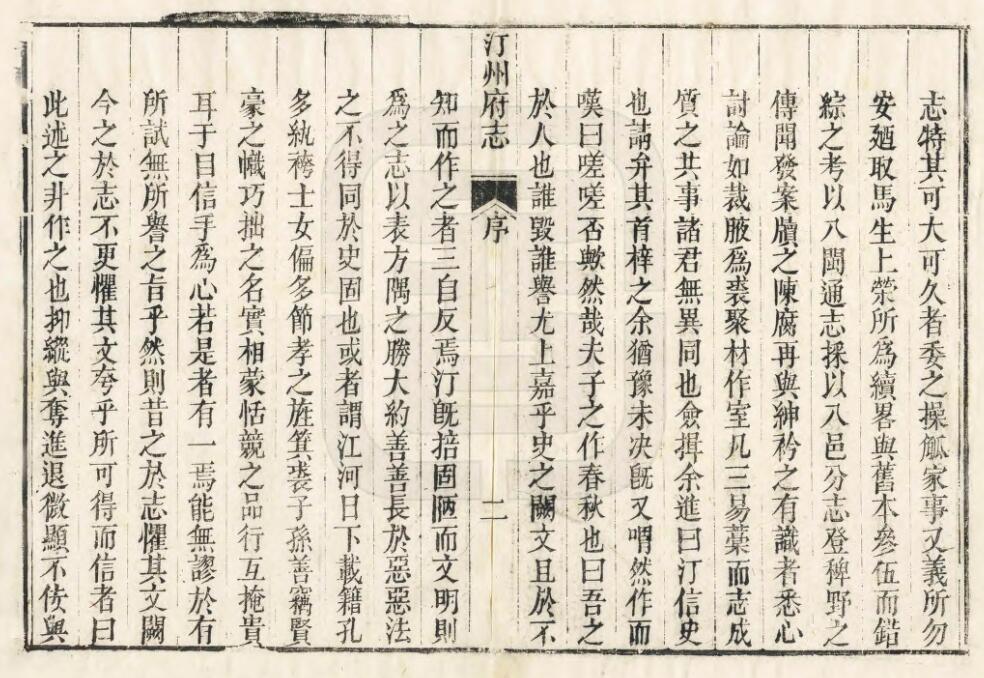 志特其可大可久者委之操觚家事又義所勿
安廼取馬生上榮所爲續畧與舊本參伍而錯
綜之考以八閩通志採以八邑分志登稗野之
傳聞發案牘之陳腐再與紳衿之有識者悉心
討論如裁腋爲裘聚材作室凡三易藁而志成
質之共事諸君無異同也僉揖余進曰汀信史
也請弁其首梓之余猶豫未决旣又喟然作而
嘆曰嗟嗟否歟然哉夫子之作春秋也曰吾之
於人也誰毀誰譽尤上嘉乎史之闕文且於不
汀州府志
序
二
知而作之者三自反焉汀旣掊固陋而文明則
爲之志以表方隅之勝大約善善長於惡惡法
之不得同於史固也或者謂江河日下載籍孔
多紈袴士女偏多節孝之旌箕裘子孫善竊賢
豪之幟巧拙之名實相蒙恬競之品行互掩貴
耳于目信手爲心若是者有一焉能無謬於有
所試無所譽之旨乎然則昔之於志懼其文闕
今之於志不更懼其文夸乎所可得而信者曰
此述之非作之也抑縱與奪進退微顯不俟與